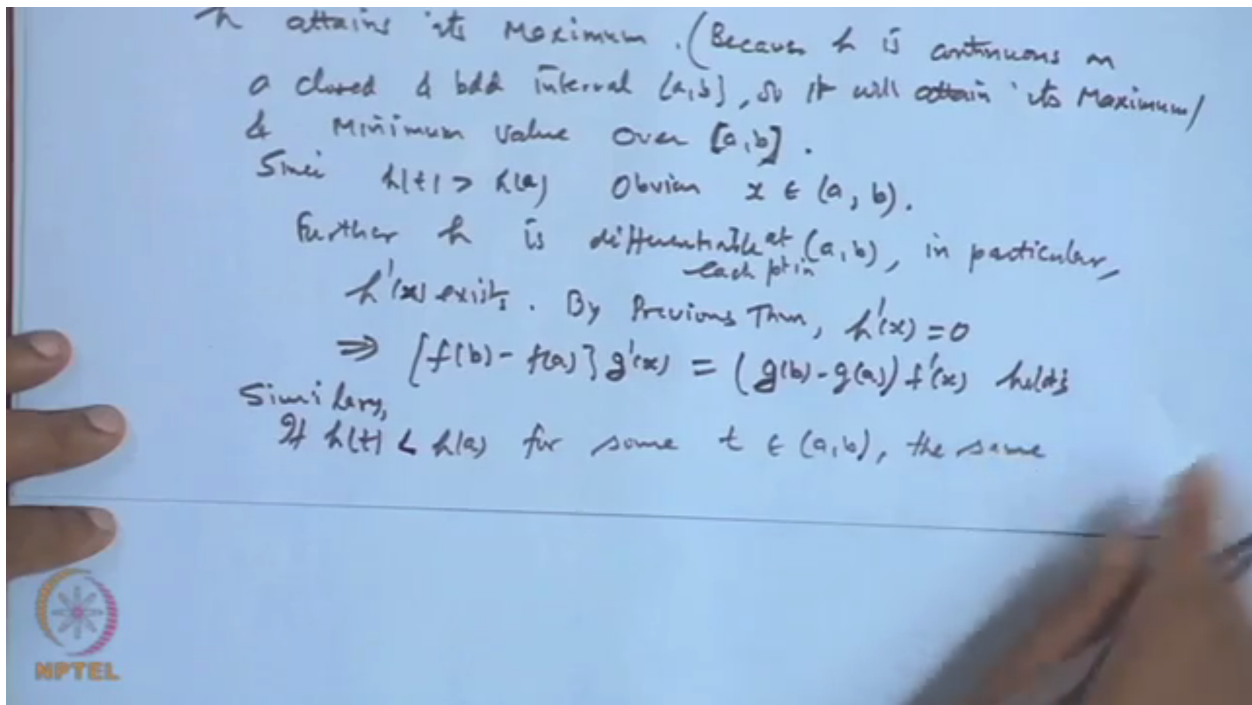 h attains its Maximum. (Because h is continuous on
a closed & bdd interval [a,b], so it will attain its Maximum/
& Minimum value over [a,b].
Since h(t) > h(a) Obvian x ∈ (a, b).
Further h is differentiable at (a, b), in particular,
each pt in
h'(x) exists. By Previous Thm, h'(x) = 0
⇒ [f(b) - f(a)] g'(x) = (g(b) - g(a)) f'(x) holds
Similarly,
If h(t) < h(a) for some t ∈ (a,b), the same
NPTEL